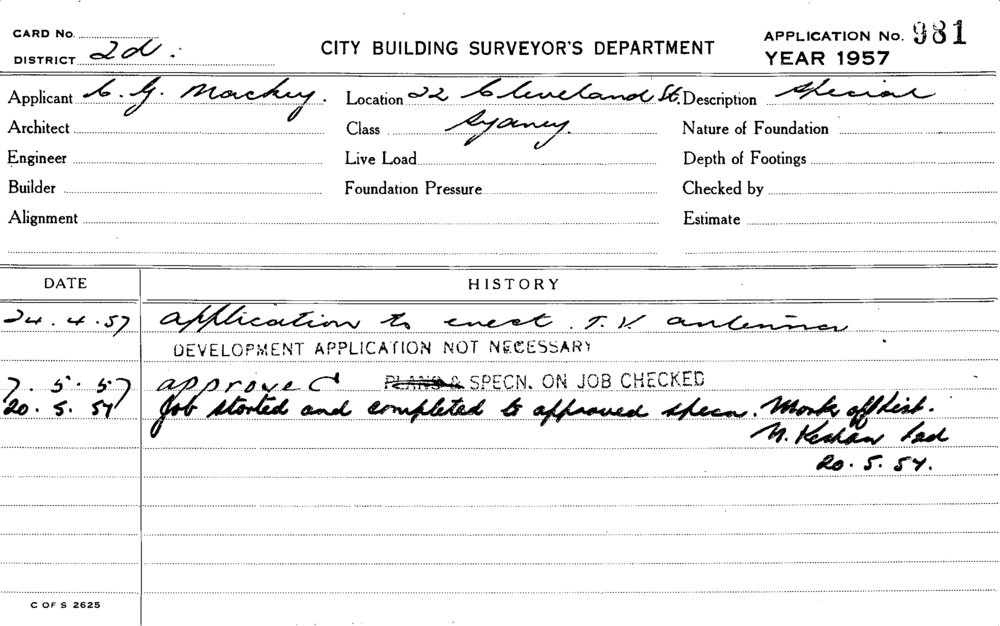 CARD No.
DISTRICT 2d.
CITY BUILDING SURVEYOR'S DEPARTMENT
APPLICATION No. 981
YEAR 1957
Applicant C. G. Mackey. Location 22 Cleveland St. Description Special
Architect Class Sydney. Nature of Foundation
Engineer Live Load Depth of Footings
Builder Foundation Pressure Checked by
Alignment Estimate
DATE HISTORY
24.4.57 application to erect T.V. antenna
DEVELOPMENT APPLICATION NOT NECESSARY
7.5.57 approved PLANS & SPECN. ON JOB CHECKED
20.5.57 Job started and completed to approved specn. Mark off list.
20.5.57.
C OF S 2625